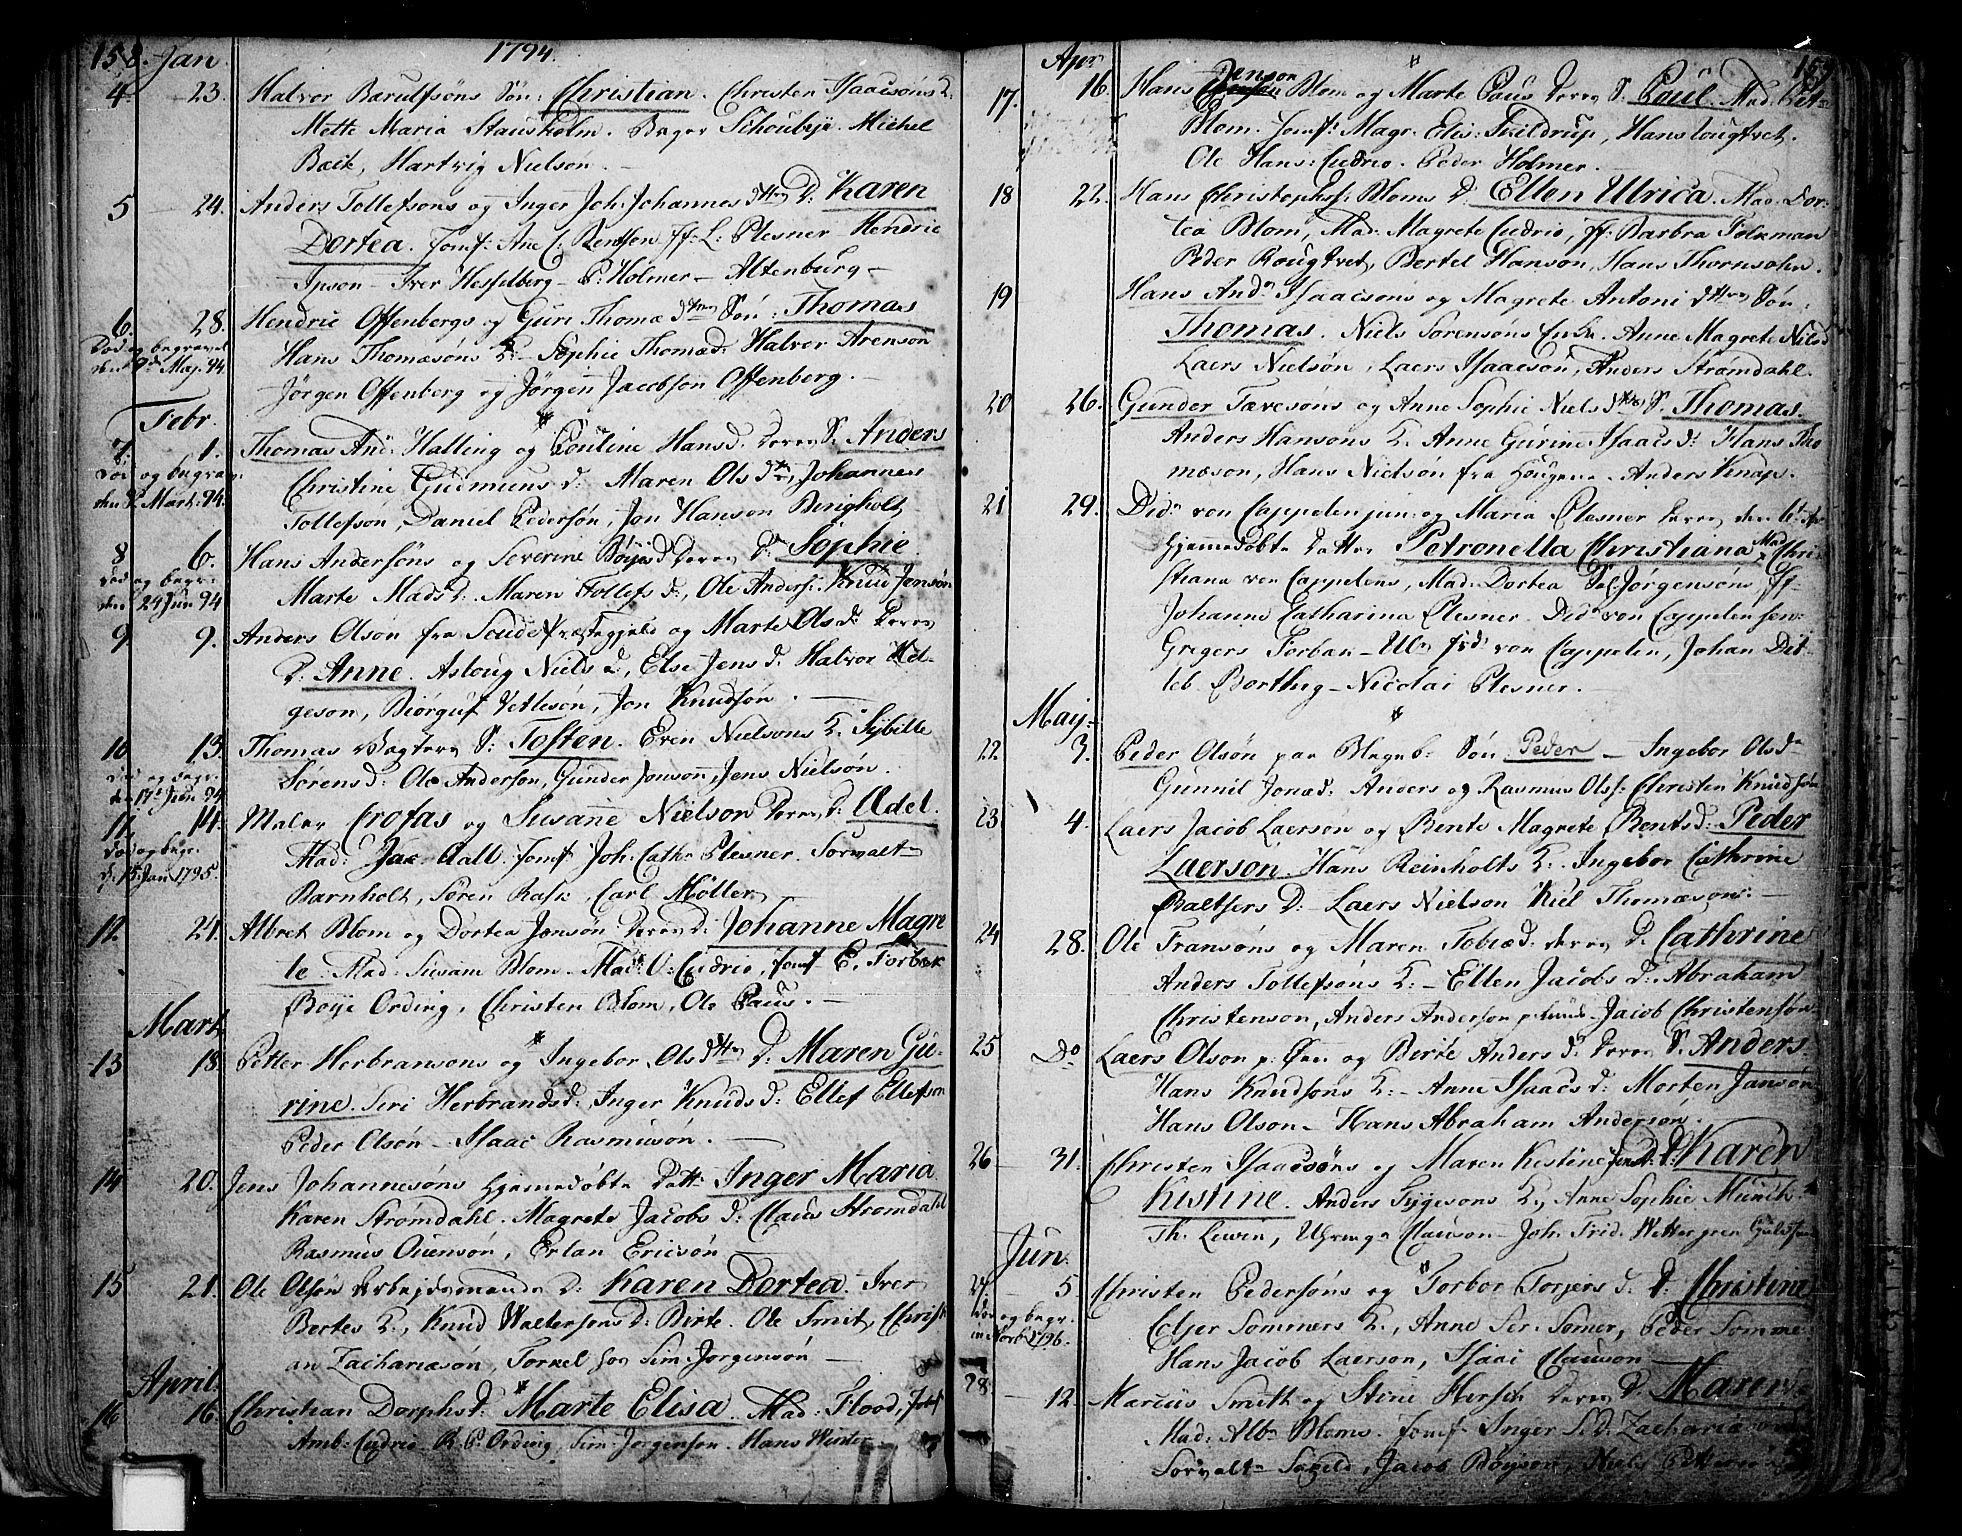 158. Jan. 1794.
4. 23. Halvor Barulfsöns Sön: Christian. Christen Isaacsöns D:
Mette Maria Stausholm. Bager Schoubye. Michel
Back, Hartvig Nielsön.
5 24. Anders Tollefsons og Inger Joh: Johannes dttr D. Karen
Dortea. Jomf: Ane C. Rentson. Jf: L: Plesner Hendric
Ipson - Iver Hesselberg - P: Holmer - Altenburg -
6. 28. Hendric Offenbergs og Guri Thomæ dttr Sön: Thomas
Död og begravet
den 9de Maj. 94.
Hans Thomæsöns K: - Sophie Thomæd: Halvor Arenson
Jörgen Offenberg og Jörgen Jacobson Offenberg. -
Febr.
7. 1. Thomas And: Halling og Pouline Hansd: deres S: Anders
Död og begrav
den 2 Mart. 94.
Christine Gudmuns d: Maren Ols dtr, Johannes
Tollefsön, Daniel Pedersön, Jon Hanson Berigholt
8 6. Hans Andersöns og Severine Böijesd deres D: Sophie
död og begr:
den 24 Jun 94
Marte Mads D. Maren Tollefs d:, Ole Anders: Knud Jonsön
9. 9. Anders Olsön fra Soude Præstegjeld og Marte Ols d: deres
D. Anne. Asloug Niels d, Else Jens d: Halvor Hel-
geson, Biörguf Vetlesön, Jon Knudsön.
10 13. Thomas Vogters S: Tosten. Even Nielsons K: Sybille
död og begr:
den 17de Jun 94
Sörens d: Ole Anderson, Gunder Jonson, Jens Nielsön.
11. 14. Maler Crofas og Susanne Nielson deres D: Adel.
död og begr:
d. 15 Jan 1795.
Mad: Jac Aall. Jomf: Joh: Cath: Plesner. Forvalt
Barnholt, Sören Rask, Carl Möller
12. 21. Albret Blom og Dortea Jensön deres D: Johanne Magre
te. Mad: Susam Blom. Mad: O: Cudrio, Jomf E. Forbæk
Boije Ording, Christen Blom, Ole Paus. -
Mart.
13 18. Petter Herbransons og Ingebor Ols dttr D: Maren Gu-
rine. Siri Herbrandsd:, Inger Knuds d: Ellef Ellefson
Peder Olsön - Isaac Rasmusön.
14 20. Jens Johannesöns Hjemmedöbte Datt: Inger Maria
Karen Strömdahl. Magrete Jacobs d: Claus Strömdahl
Rasmus Ouensön, Erlan Ericsön
15 21. Ole Olsön Arbejdsmands D: Karen Dortea. Iver
Bertes K:, Knud Waltersons D: Birte. Ole Smit, Christ
an Zachariasön, Torkel hos Sim: Jorgensön
April.
16. 16. Christian Dorphs d: Marte Elisa. Mad: Flood, Jomf
Amb: Cudrio R. P. Ording, Sim: Jorgenson. Hans Winter
Apr. 159
17. 16. Hans Jenson Blom og Marte Paus deres S: Poul. Mad: Pet
Blom. Jomf: Magr: Elis: Feildrup, Hans Rougtvet.
Ole Hans: Cudrio. Peder Holmer.
18 22. Hans Christophs: Bloms D. Ellen Ulrica. Mad: Dor-
tea Blom, Mad: Magrete Cudrio, Jf: Barbra Folkman
Peder Rougtvet, Bertel Hanson, Hans Thornsohn.
19 Hans And: Isaacsons og Magrete Antoni dttr Sön:
Thomas. Niels Sorensöns Enke. Anne Magrete Nils d
Laers Nielsön, Laers Isaacson, Anders Strömdahl.
20 26. Gunder Tævesons og Anne Sophie Niels dttr S. Thomas.
Anders Hansons K. Anne Gurine Isaacs d: Hans Tho
mæson, Hans Nielsön fra Hougene - Anders Knap.
21 29. Did: von Cappelen jun: og Maria Plesner deres den 6te Apr
hjemmedöbte Datter Petronella Christiana Mad: Chri-
stiana von Cappelens, Mad: Dortea Sal: Jörgensöns Jf:
Johanne Catharina Plesner. Did: von Cappelen sen:
Gregers Forban - Ulr: Frd: von Cappelen, Johan Dit
leb Borthig - Nicolai Plesner.
Maj.
22 3. Peder Olsön paa Blegeb: Sön Peder - Ingebor Ols d
Gunnil Jonæd: Anders og Rasmus Ols: Christen Knudsön
23 4. Laers Jacob Laerson og Bente Magrete Bentsd: Peder
Laerson. Hans Reinholts K: Ingebor Cathrine
Baltsers D: - Laers Nielson Kiel Thomæson. -
24 28. Ole Fransöns og Maren Tobiæd: deres D. Cathrine
Anders Tollefsöns K: - Ellen Jacobs d: Abraham
Christenson, Anders Anderson p. Lund - Jacob Christensön
25 Do Laers Olson p. Öen og Berte Anders d: deres S: Anders
Hans Knudsöns K: - Anne Isaacs d: Morten Jansön
Hans Olson - Hans Abraham Anderson.
26 31. Christen Isaacsöns og Maren Kistine Jensd: D. Karen
Kistine. Anders Tygesons K:, Anne Sophie Münch
Th. Lewin, Clauson - Joh: Frid: Wettergren
Jun.
27. 5 Christen Pedersöns og Torbor Torjers d: D: Christine
död og begr:
1796.
Eljer Sommers K:, Anne Ser: Somer, Peder Somme
Hans Jacob Laerson, Isaac Clauson
28 12. Marcus Smith og Stine Hersch deres D. Maren
Mad: Alb: Bloms. Jomf Inger S: D: Zachariasön
Forvalt: Sogeld, Jacob Böyson, Niels Pettersön